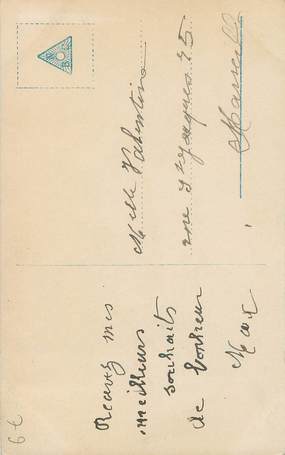 Recevez mes
meilleurs
souhaits
de bonheur
Max
Melle Valentine
rue St Jacques 75
Marseille
6 €